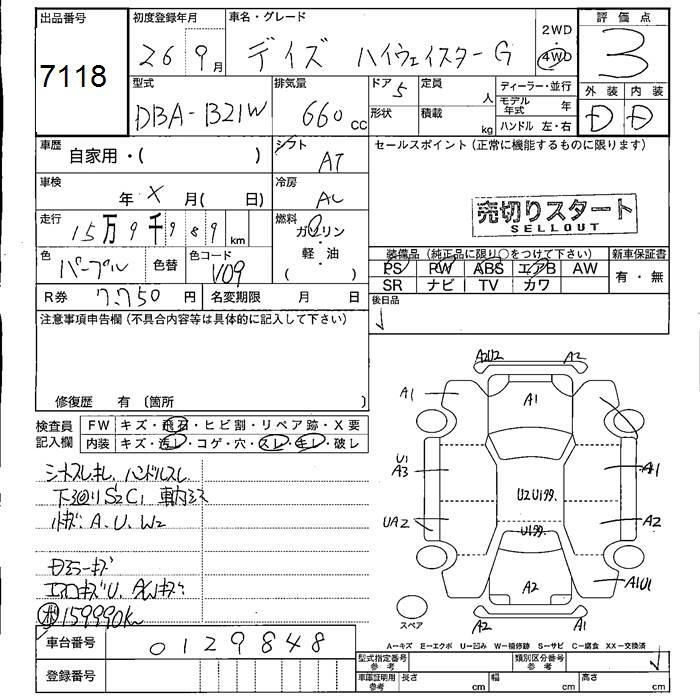 出品番号
7118
初度登録年月
26 9月
車名・グレード
デイズ ハイウェイスターG
2WD
4WD
評価点
3
型式
DBA-B21W
排気量
660 cc
ドア 5
定員
人
形状
積載
kg
ディーラー・並行
モデル年式
年
ハンドル 左・右
外装 内装
D D
車歴
自家用・( )
シフト
AT
車検
年 X 月( 日)
冷房
AC
走行
15万9千989 km
燃料
ガソリン
・
軽・油
( )
色
パープル
色替
色コード
V09
R券
7,750 円
名変期限 月 日
セールスポイント (正常に機能するものに限ります)
売切りスタート
SELLOUT
装備品 (純正品に限り○をつけて下さい)
PS PW ABS エアB AW
SR ナビ TV カワ
新車保証書
有・無
後日品
注意事項申告欄 (不具合内容等は具体的に記入して下さい)
修復歴 有 〔箇所 〕
検査員
記入欄
FW キズ・飛石・ヒビ割・リペア跡・X要
内装 キズ・汚レ・コゲ・穴・スレ・キレ・破レ
シートスレキレ、ハンドルスレ
下廻りS2C1
小キズ、A、U、W2
159990km
A2U2 A2
A1 A1
U1
A3 A1
U2 U199.
UA2 A2
U199.
A2 A1U1
スペア
A2 A1
A-キズ E-エクボ U-凹み W-補修跡 S-サビ C-腐食 XX-交換済
車台番号
0129848
登録番号
型式指定番号
参考
類別区分番号
参考
車庫証明用
参考
長さ cm 幅 cm 高さ cm